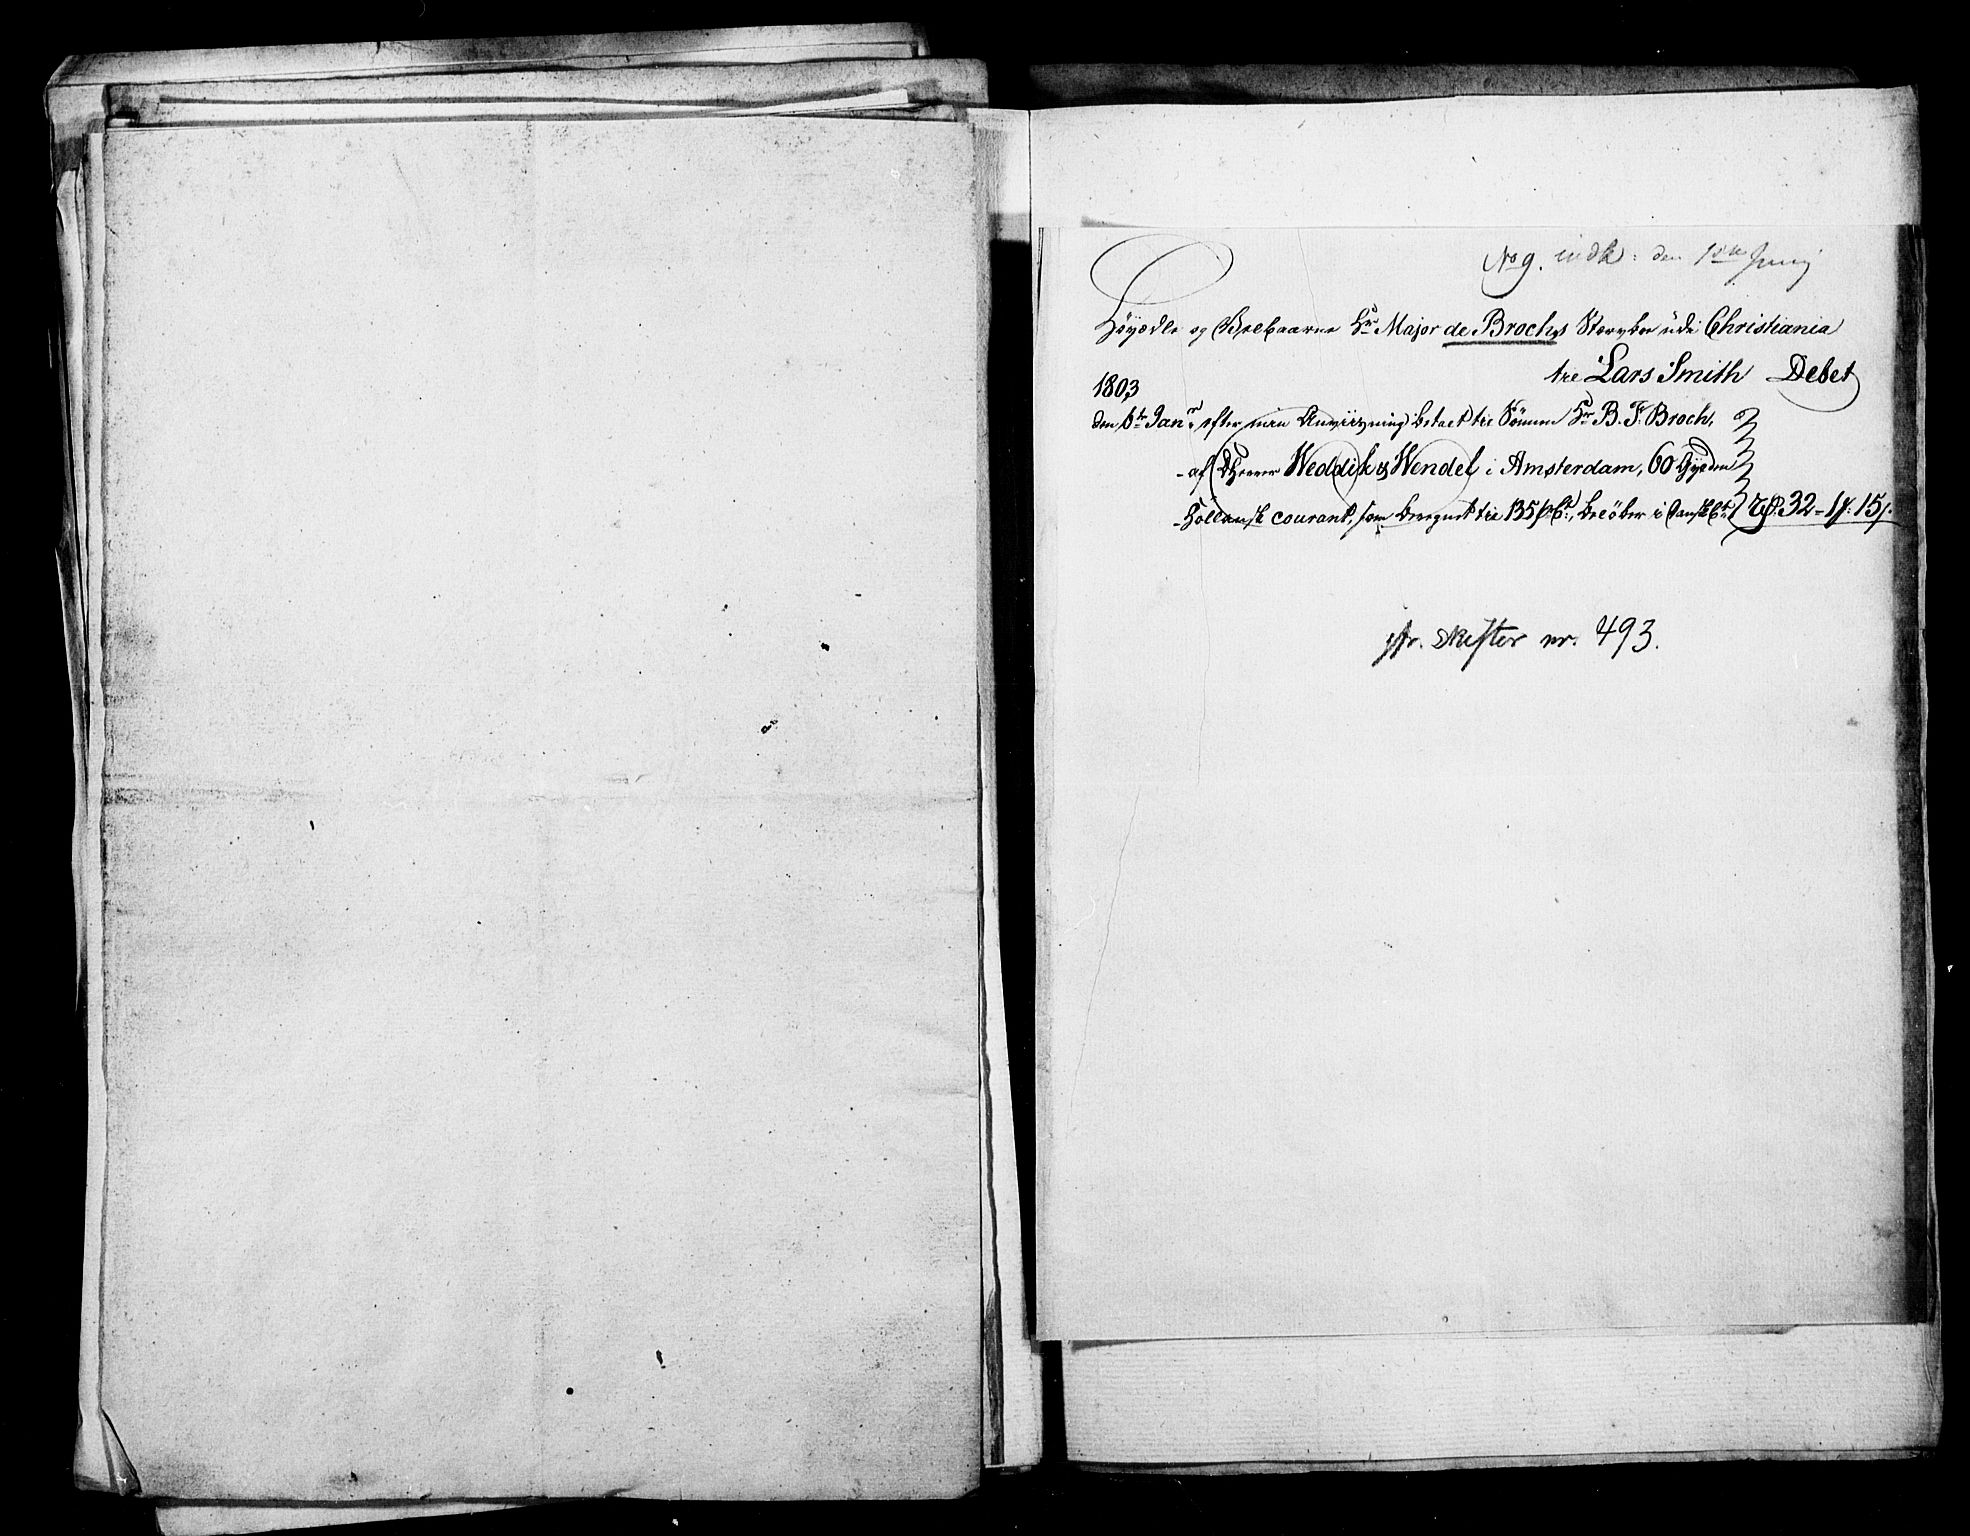 No 9. indk: den 18de Junij
Höyædle og Velbaarne Hr Major de Brochs Stervboe udi Christiania
til Lars Smith Debet
1803
den 6te Janr efter min Anviisning betalt til Sönnen Hr B. F. Broch,
af DHerrer Weddik & Wendel i Amsterdam, 60 Gylden
Hollansk courant, som beregnet til 135 pCt, belöber i Dansk Ct Rd. 32 - 1 ß: 15 s.
jfr. skifter nr. 493.